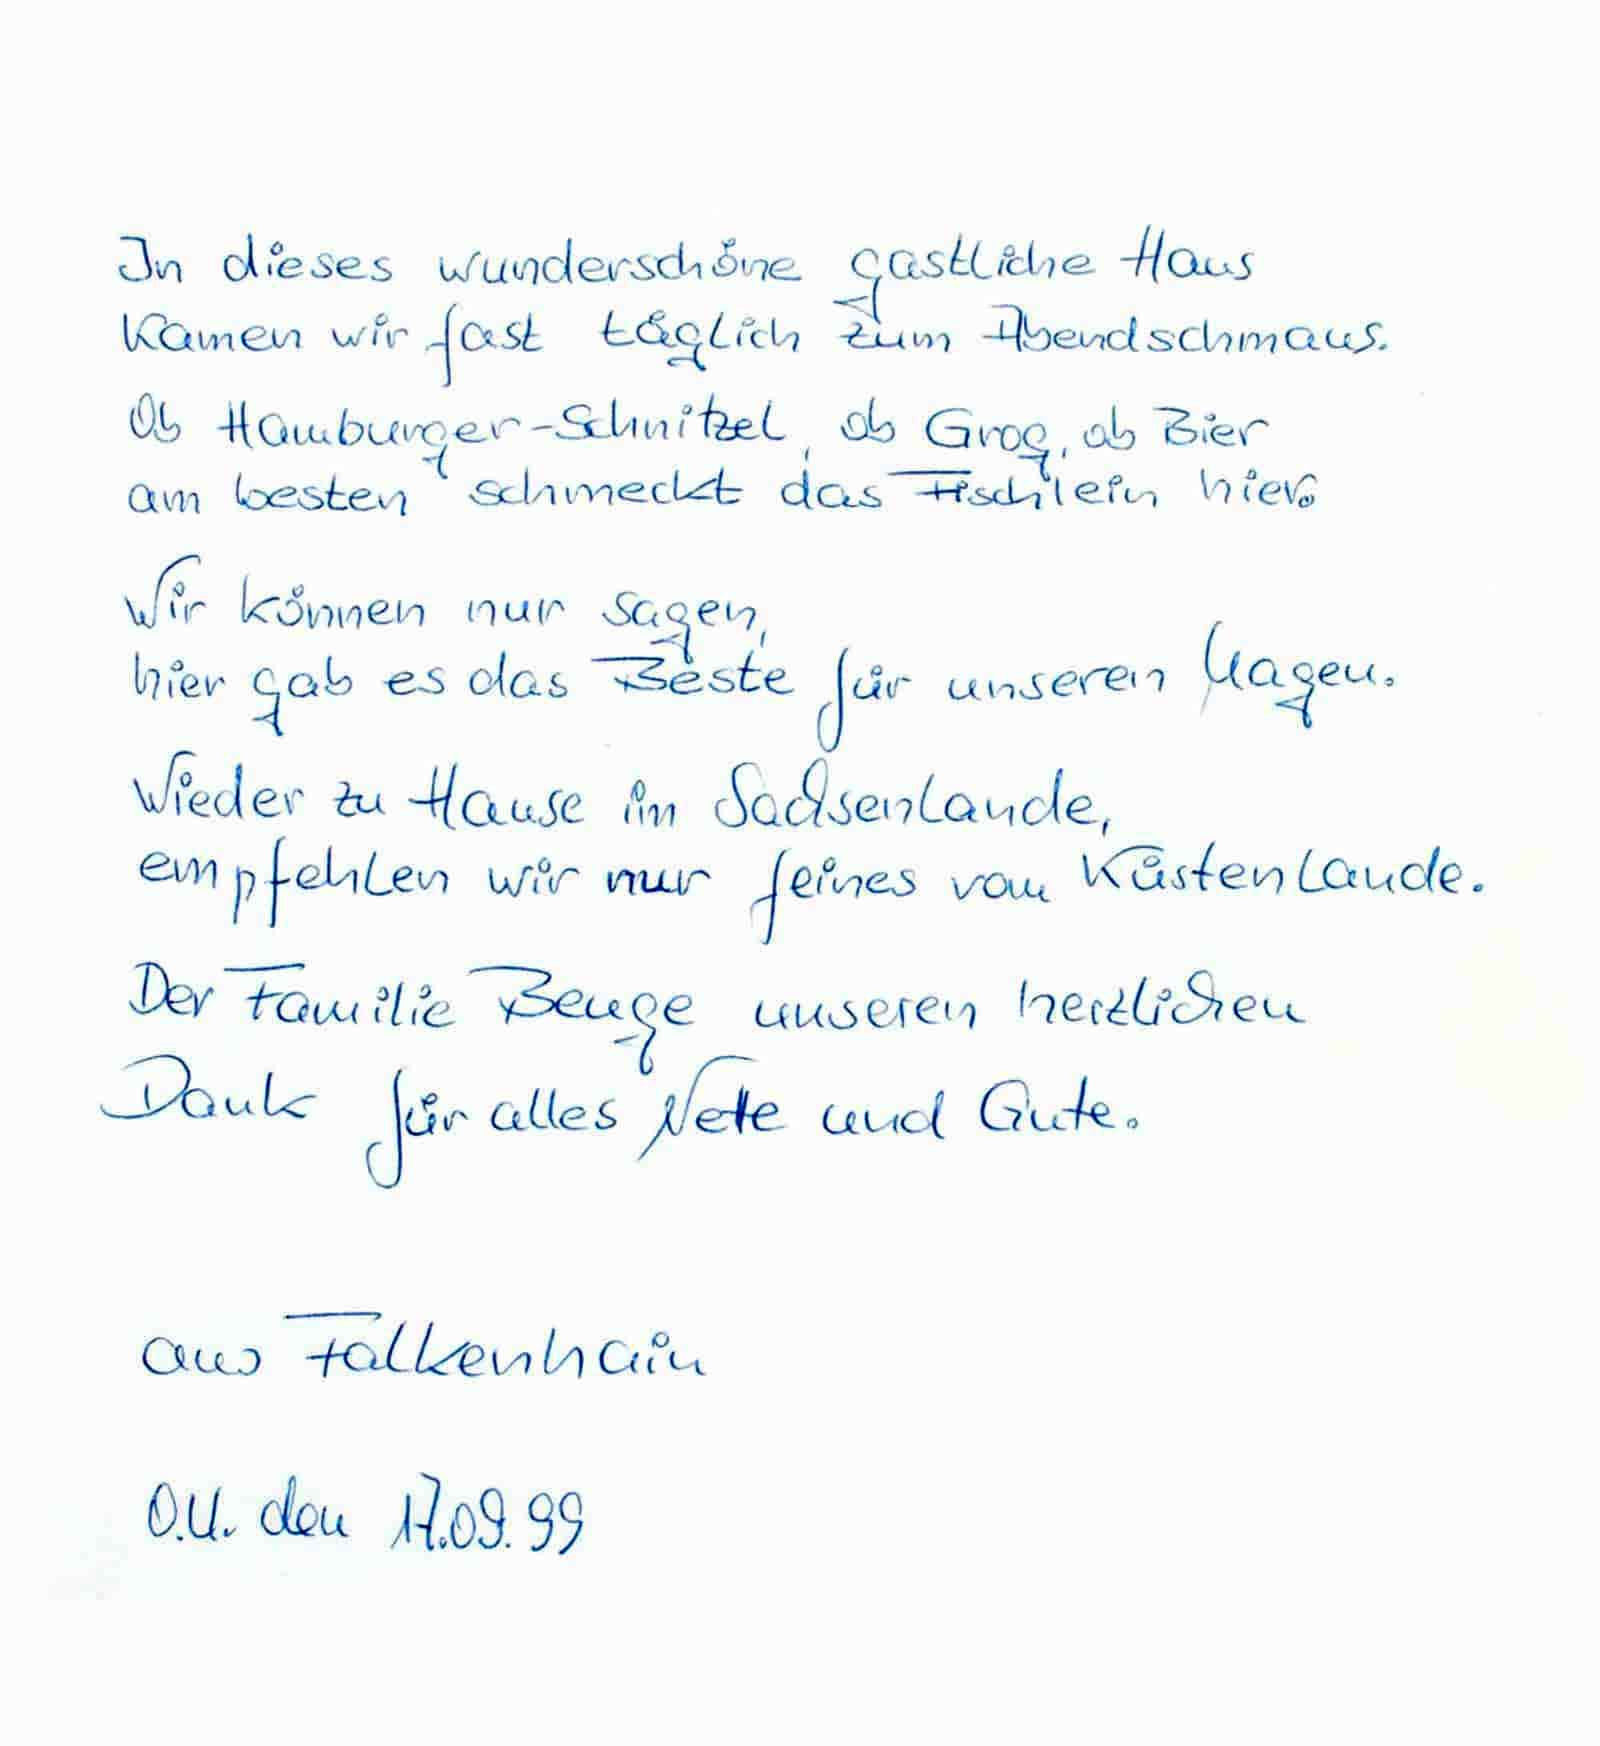 In dieses wunderschöne gastliche Haus
Kamen wir fast täglich zum Abendschmaus.
Ob Hamburger-Schnitzel, ob Grog, ob Bier
am besten schmeckt das Fischlein hier.
Wir können nur sagen,
hier gab es das Beste für unseren Magen.
Wieder zu Hause im Sachsenlande,
empfehlen wir nur feines vom Küstenlande.
Der Familie Benge unseren herzlichen
Dank für alles Nette und Gute.
aus Falkenhain
O.U. den 17.09.99